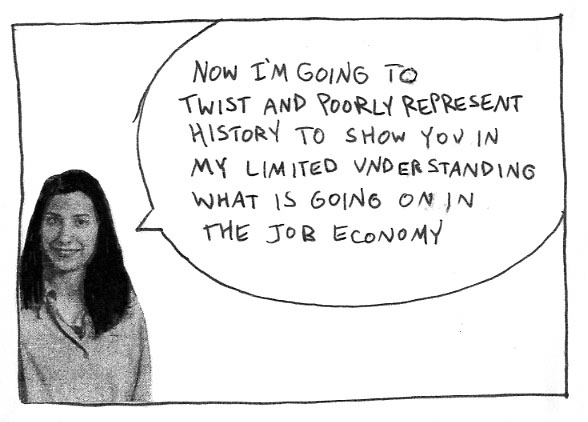 NOW I'M GOING TO
TWIST AND POORLY REPRESENT
HISTORY TO SHOW YOU IN
MY LIMITED UNDERSTANDING
WHAT IS GOING ON IN
THE JOB ECONOMY